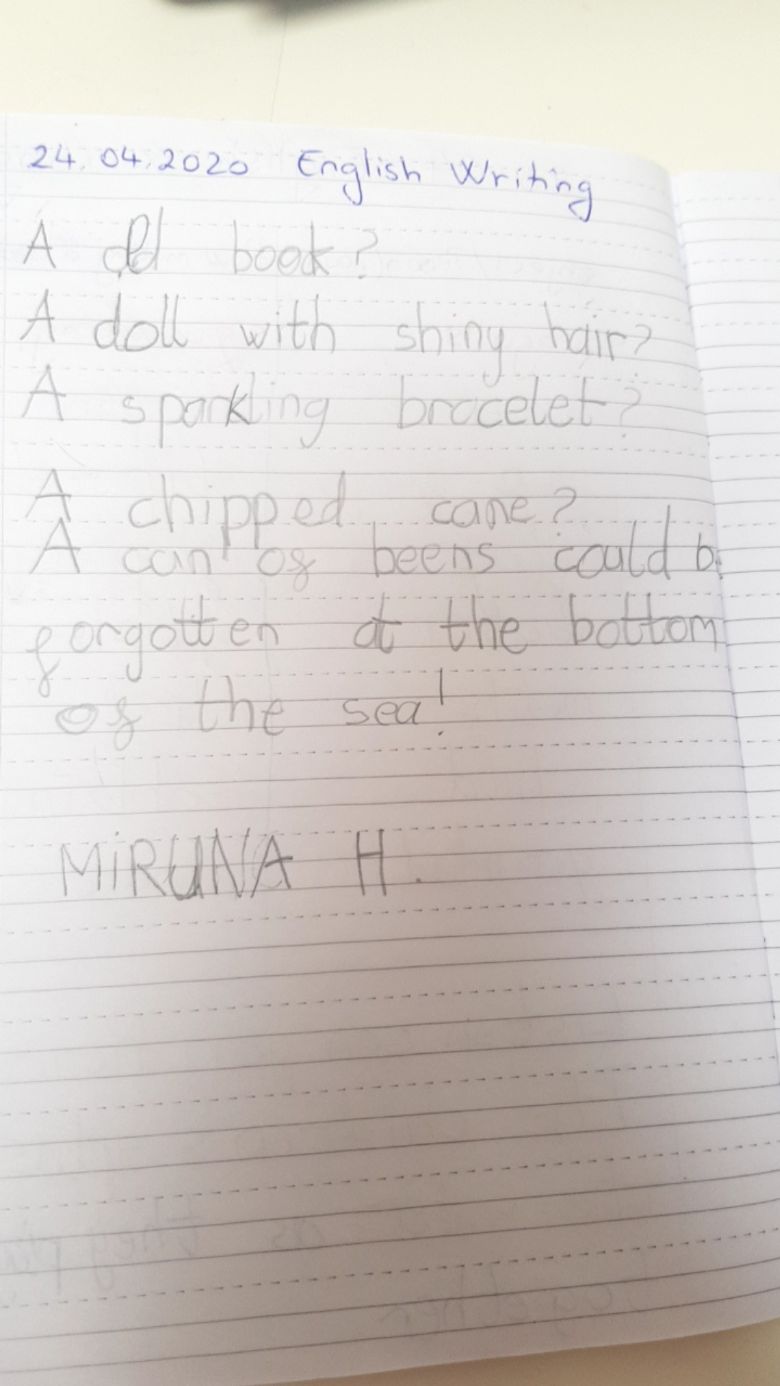 24.04.2020 English Writing
A old book?
A doll with shiny hair?
A sparkling bracelet?
A chipped cane?
A can of beens could be
forgotten at the bottom
of the sea!
MiRUNA H.